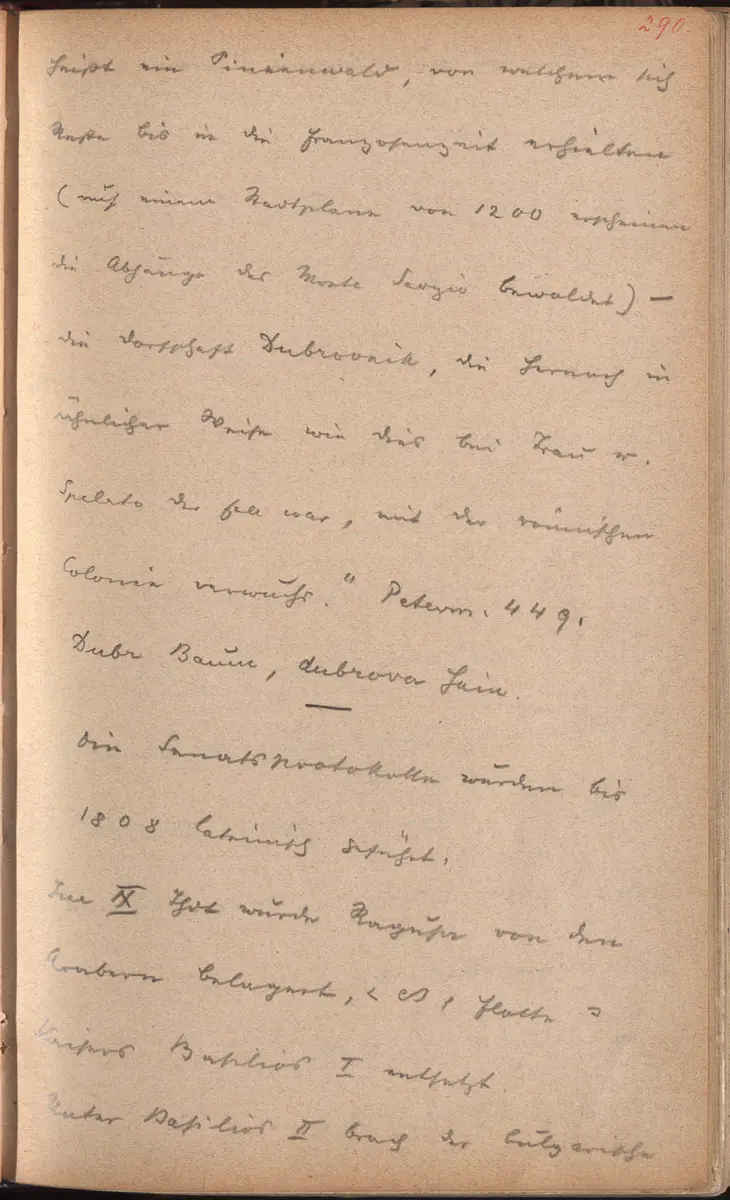 290.
heißt ein Pinienwald, von welchem sich
Reste bis in die Franzosenzeit erhielten
(auf einem Stadtplane von 1200 erscheinen
die Abhänge des Monte Sergio bewaldet) –
die Dorfschaft Dubrovnik, die hernach in
ähnlicher Weise wie dies bei Trau u.
Spalato der Fall war, mit der römischen
Colonie verwuchs." Peterm. 449.
Dubr Baum, dubrova Hain.
Die Senatsprotokolle wurden bis
1808 lateinisch geführt.
Im IX Jhdt wurde Ragusa von den
Arabern belagert, Flotte
Kaisers Basilios I entsetzt.
Unter Basilios II brach der bulgarische